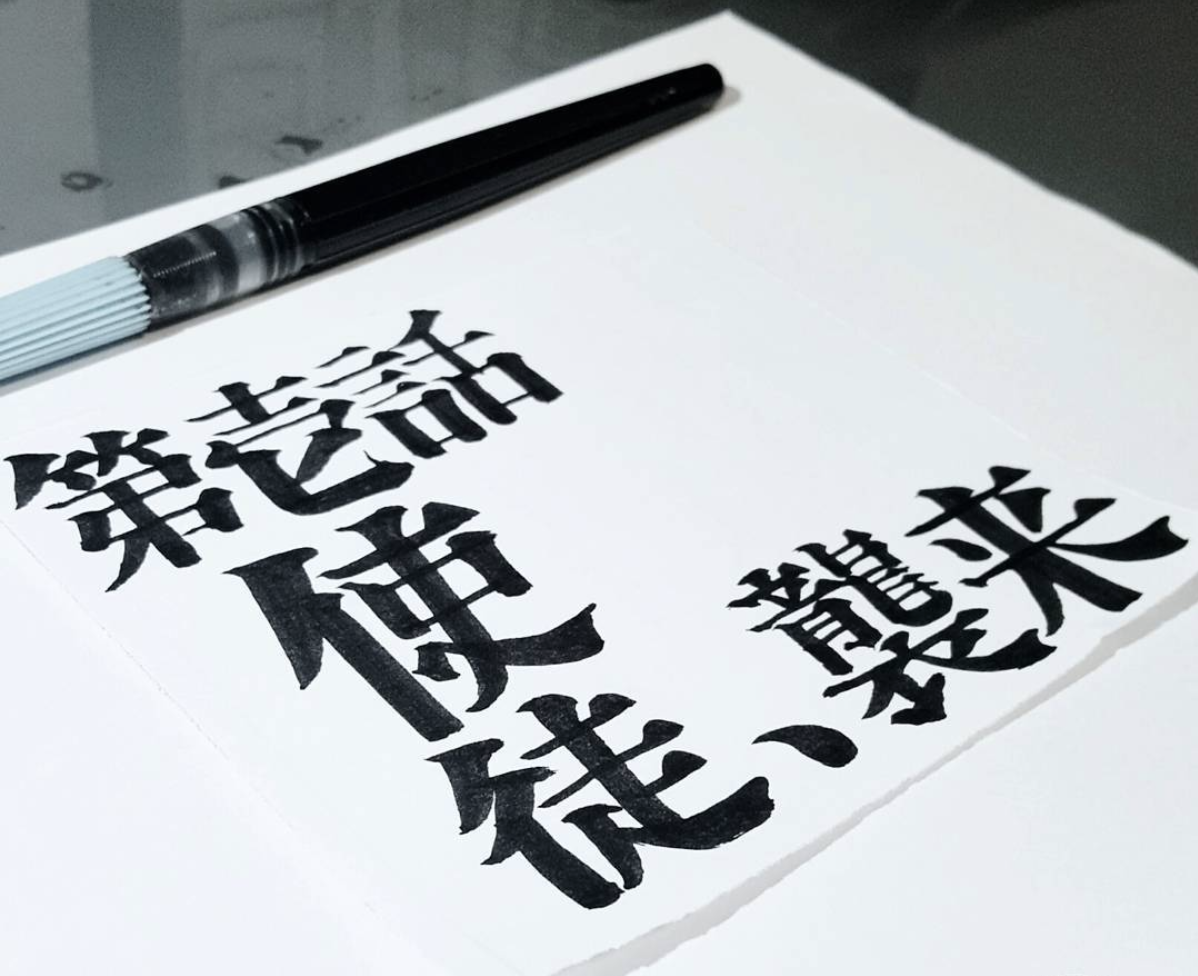 第壱話
使徒、襲来